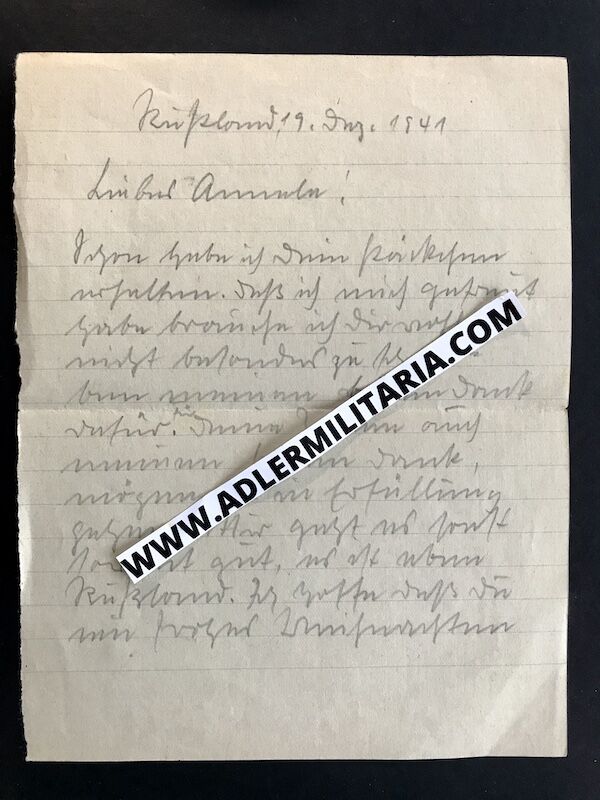 Rußland, 19. Dez. 1941
Liebes Annele!
Schon habe ich Dein Päckchen
erhalten. Daß ich mich gefreut
habe brauche ich Dir
nicht besonders zu
ben meinen Dank
dafür. Für Deine auch
meinen Dank,
mögen in Erfüllung
gehen. Mir geht es sonst
gut, es ist eben
Rußland. Ich hoffe daß Du
ein frohes Weihnachten
WWW.ADLERMILITARIA.COM